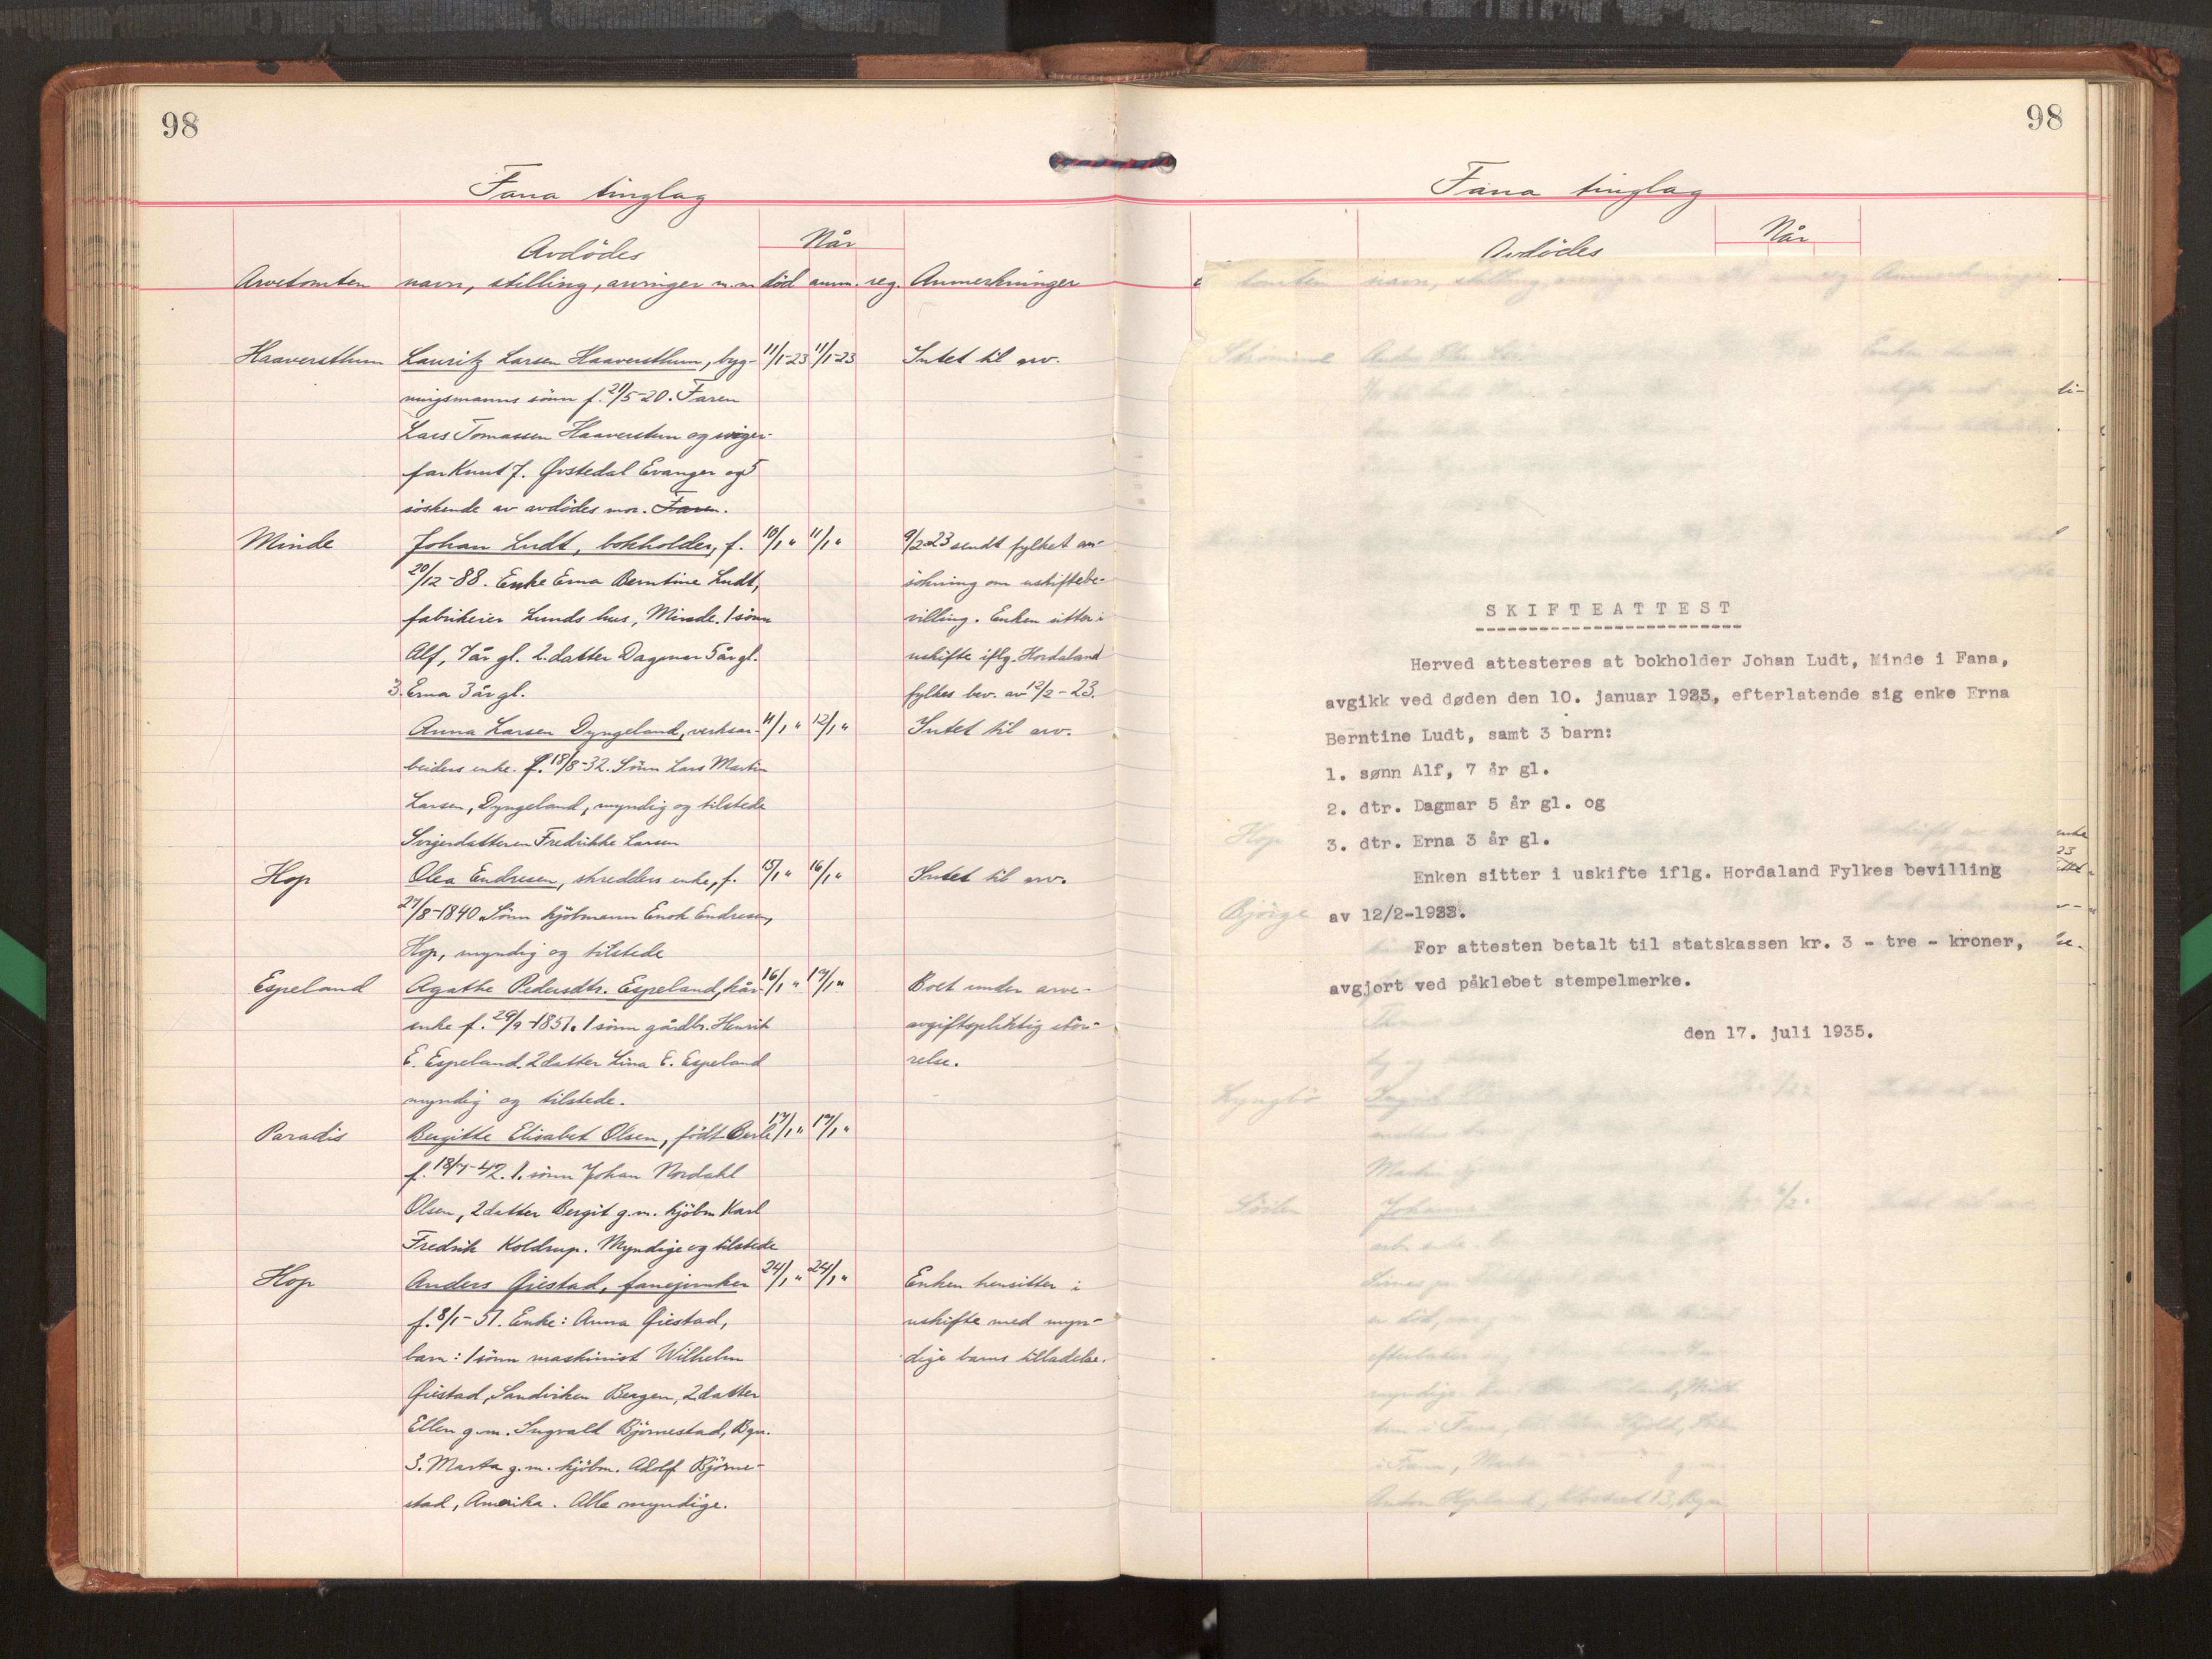 98
Fana tinglag
Avdödes
Når
Arvetomten navn, stilling, arvinger m.m död anm. reg. Anmerkninger
Haaversthun Lauritz Larsen Haaversthun, byg- 11/1-23 11/1-23 Intet til arv.
ningsmanns sönn f. 21/5-20. Faren
Lars Tomassen Haaversthun og sviger-
far Knut J. Øvstedal Evanger og 5
söskende av avdödes mor. Faren.
Minde Johan Ludt, bokholder, f. 10/1 " 11/1 " 9/2-23 sendt fylket an-
20/12-88. Enke Erna Berntine Ludt, sökning om uskiftebe-
fabrikeier Lunds hus, Minde. 1 sönn villing. Enken sitter i
Alf, 7 år gl. 2. datter Dagmar 5 år gl. uskifte iflg. Hordaland
3. Erna 3 år gl. fylkes bev. av 12/2-23.
Anna Larsen Dyngeland, verksar- 11/1 " 12/1 " Intet til arv.
beiders enke. f. 18/8-32. Sönn Lars Martin
Larsen, Dyngeland, myndig og tilstede
Svigerdatteren Fredrikke Larsen
Hop Olea Endresen, skredders enke, f. 15/1 " 16/1 " Intet til arv.
27/8-1840 Sönn kjöbmann Enok Endresen,
Hop, myndig og tilstede
Espeland Agathe Pedersdtr. Espeland, kår- 16/1 " 17/1 " Boet under arve-
enke f. 29/9-1851. 1 sönn gårdbr. Henrik avgiftspliktig stör-
E. Espeland. 2 datter Lina E. Espeland relse.
myndig og tilstede.
Paradis Bergitte Elisabet Olsen, födt Berle 17/1 " 17/1 "
f. 18/7-42. 1. sönn Johan Nordahl
Olsen, 2 datter Bergit g.m. kjöbm Karl
Fredrik Koldrup. Myndige og tilstede
Hop Anders Giestad, fanejunker 24/1 " 24/1 " Enken hensitter i
f. 8/1-51. Enke: Anna Giestad, uskifte med myn-
barn: 1 sönn maskinist Wilhelm dige barns tilladelse.
Giestad, Sandviken Bergen, 2 datter
Ellen g.m. Ingvald Björnestad, Bgn.
3. Marta g.m. kjöbm. Adolf Björne-
stad, Amerika. Alle myndige.
98
Fana tinglag
Avdödes
Når
SKIFTEATTEST
Herved attesteres at bokholder Johan Ludt, Minde i Fana,
avgikk ved døden den 10. januar 1923, efterlatende sig enke Erna
Berntine Ludt, samt 3 barn:
1. sønn Alf, 7 år gl.
2. dtr. Dagmar 5 år gl. og
3. dtr. Erna 3 år gl.
Enken sitter i uskifte iflg. Hordaland Fylkes bevilling
av 12/2-1923.
For attesten betalt til statskassen kr. 3 - tre - kroner,
avgjort ved påklebet stempelmerke.
den 17. juli 1935.